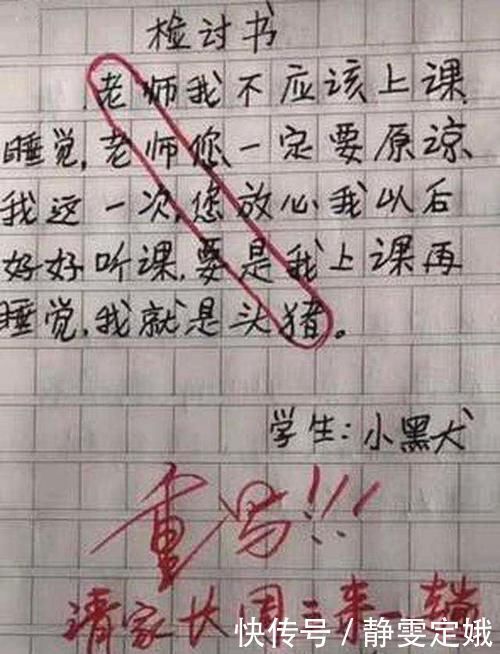 检讨书
老师我不应该上课
睡觉,老师您一定要原谅
我这一次,您放心我以后
好好听课,要是我上课再
睡觉,我就是头猪。
学生:小黑犬
重写!!!
请家长周二来一趟
快传号/静雯定娥